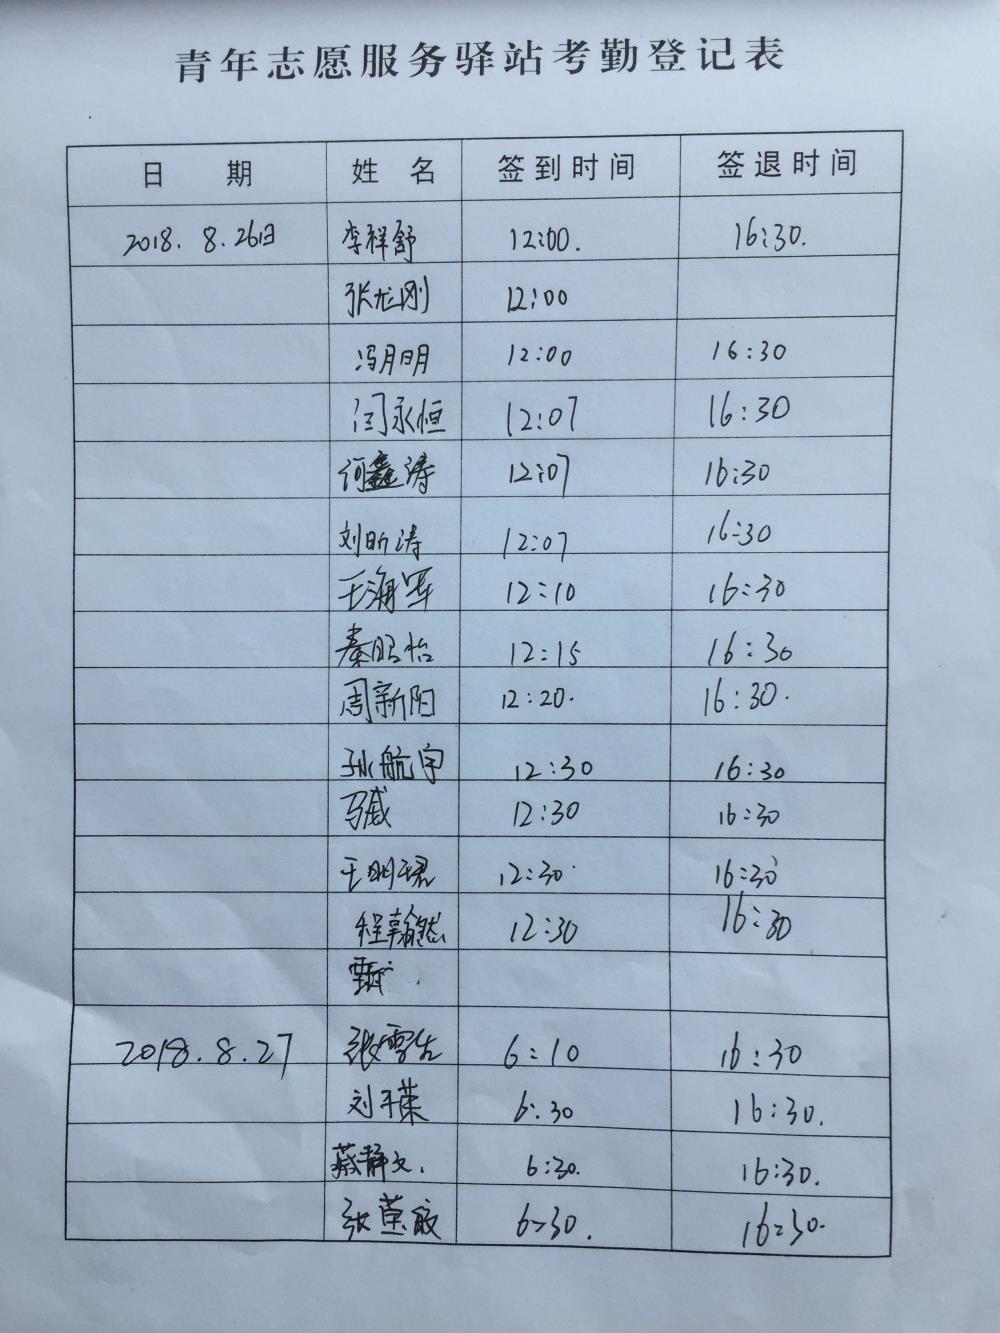 青年志愿服务驿站考勤登记表
日 期 姓 名 签到时间 签退时间
2018.8.26日 李祥舒 12:00. 16:30.
张龙刚 12:00
冯月明 12:00 16:30
闫永恒 12:07 16:30
何鑫涛 12:07 16:30
刘昕涛 12:07 16:30
王海军 12:10 16:30
秦昭怡 12:15 16:30
周新阳 12:20. 16:30.
孙航宇 12:30 16:30
马威 12:30 16:30
王明珺 12:30 16:30
程翰然 12:30 16:30
2018.8.27 张雪 6:10 16:30
刘子荣 6:30 16:30.
臧静文. 6:30. 16:30.
张董敏 6:30. 16:30.